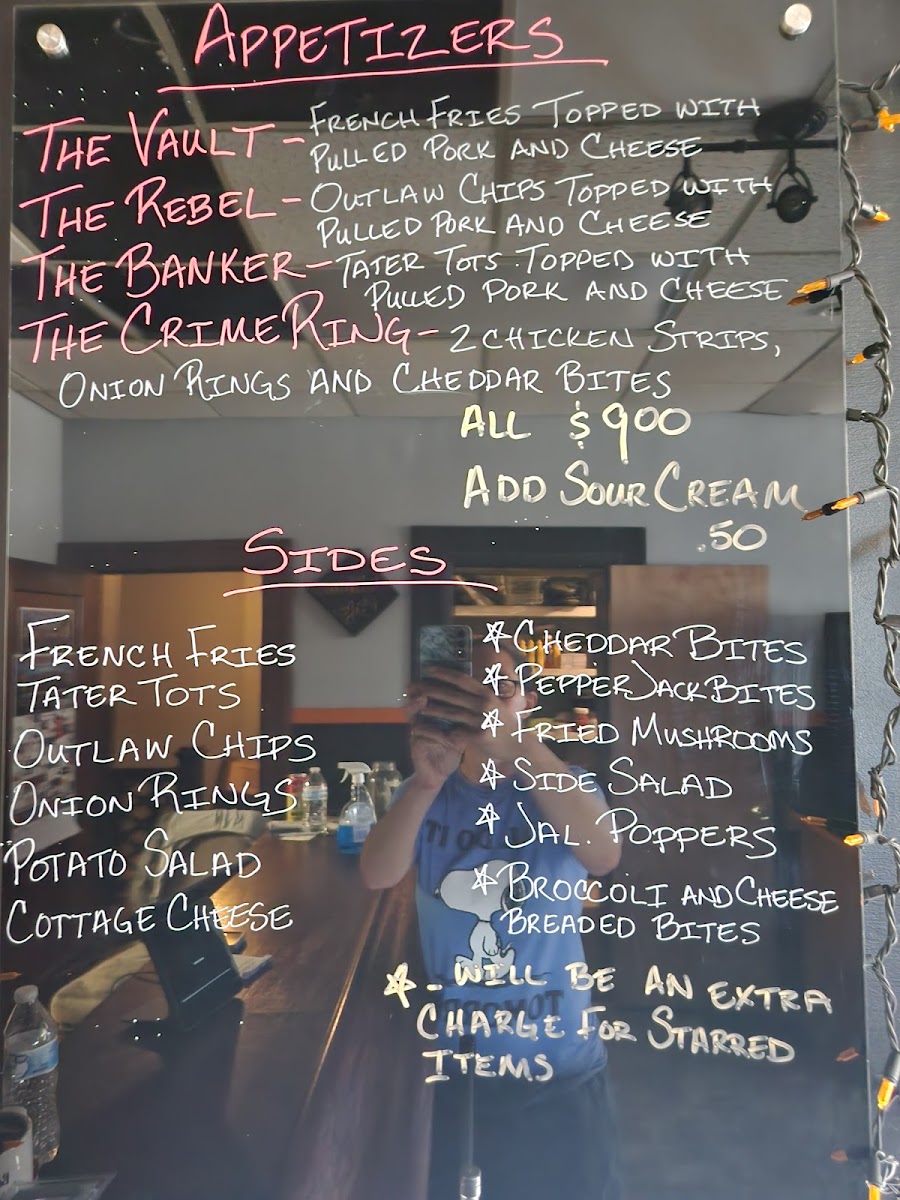 APPETIZERS
THE VAULT - FRENCH FRIES TOPPED WITH
PULLED PORK AND CHEESE
THE REBEL - OUTLAW CHIPS TOPPED WITH
PULLED PORK AND CHEESE
THE BANKER - TATER TOTS TOPPED WITH
PULLED PORK AND CHEESE
THE CRIME RING - 2 CHICKEN STRIPS,
ONION RINGS AND CHEDDAR BITES
ALL $9.00
ADD SOUR CREAM
.50
SIDES
FRENCH FRIES
TATER TOTS
OUTLAW CHIPS
ONION RINGS
POTATO SALAD
COTTAGE CHEESE
☆ CHEDDAR BITES
☆ PEPPERJACK BITES
☆ FRIED MUSHROOMS
☆ SIDE SALAD
☆ JAL. POPPERS
☆ BROCCOLI AND CHEESE
BREADED BITES
☆ - WILL BE AN EXTRA
CHARGE FOR STARRED
ITEMS